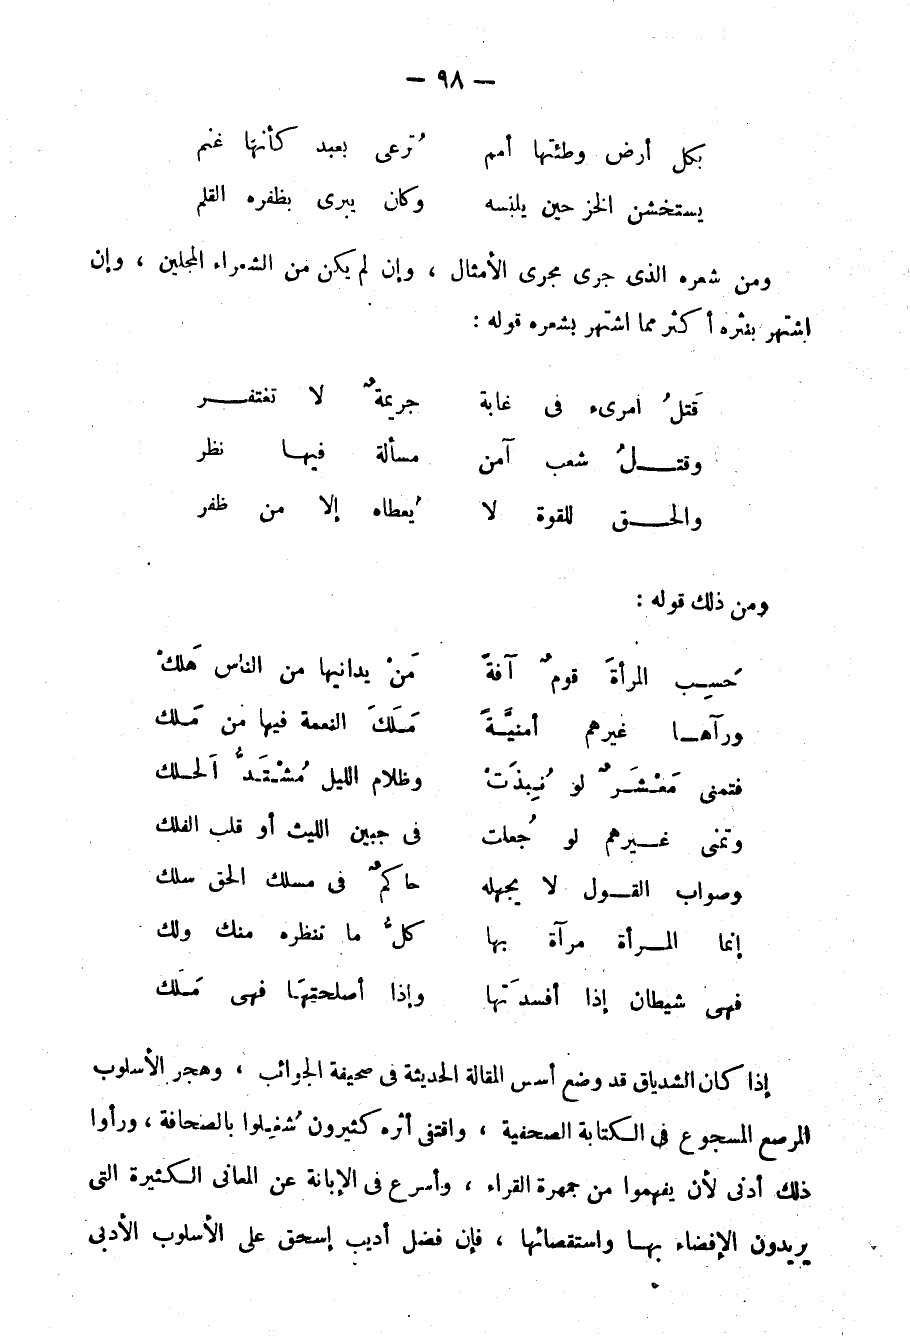 — ٩٨ —
بكل أرض وطئتها أمم تُرعى بعبد كأنها غنم
يستخشن الخز حين يلبسه وكان يبرى بظفره القلم
ومن شعره الذى جرى مجرى الأمثال ، وإن لم يكن من الشعراء المجلين ، وإن
اشتهر بنثره أكثر مما اشتهر بشعره قوله :
قَتلُ امرىء فى غابة جريمةٌ لا تغتفــر
وقتــلُ شعب آمن مسألة فيهــا نظر
والحــق للقوة لا يُعطاه إلا من ظفر
ومن ذلك قوله :
حَسِب المرأةَ قومٌ آفةً مَنْ يدانيها من الناس هَلكْ
ورآهــا غيرهم أمنيَّــةً مَلَكَ النعمة فيها من مَلك
فتمنى مَعْشَرٌ لو نُبِذَتْ وظلام الليل مُشْتَدُّ الَحلك
وتمنى غــيرهم لو جُعلت فى جبين الليث أو قلب الفلك
وصواب القــول لا يجهله حاكمٌ فى مسلك الحق سلك
إنما المــرأة مرآة بها كلُّ ما تنظره منك ولك
فهى شيطان إذا أفسدَتها وإذا أصلحتهَا فهى مَلَك
إذا كان الشدياق قد وضع أسس المقالة الحديثة فى صحيفة الجوائب ، وهجر الأسلوب
المرصع المسجوع فى الكتابة الصحفية ، واقتفى أثره كثيرون شُغِلوا بالصحافة ، ورأوا
ذلك أدنى لأن يفهموا من جمهرة القراء ، وأسرع فى الإبانة عن المعانى الكثيرة التى
يريدون الإفضاء بهــا واستقصائها ، فإن فضل أديب إسحق على الأسلوب الأدبى